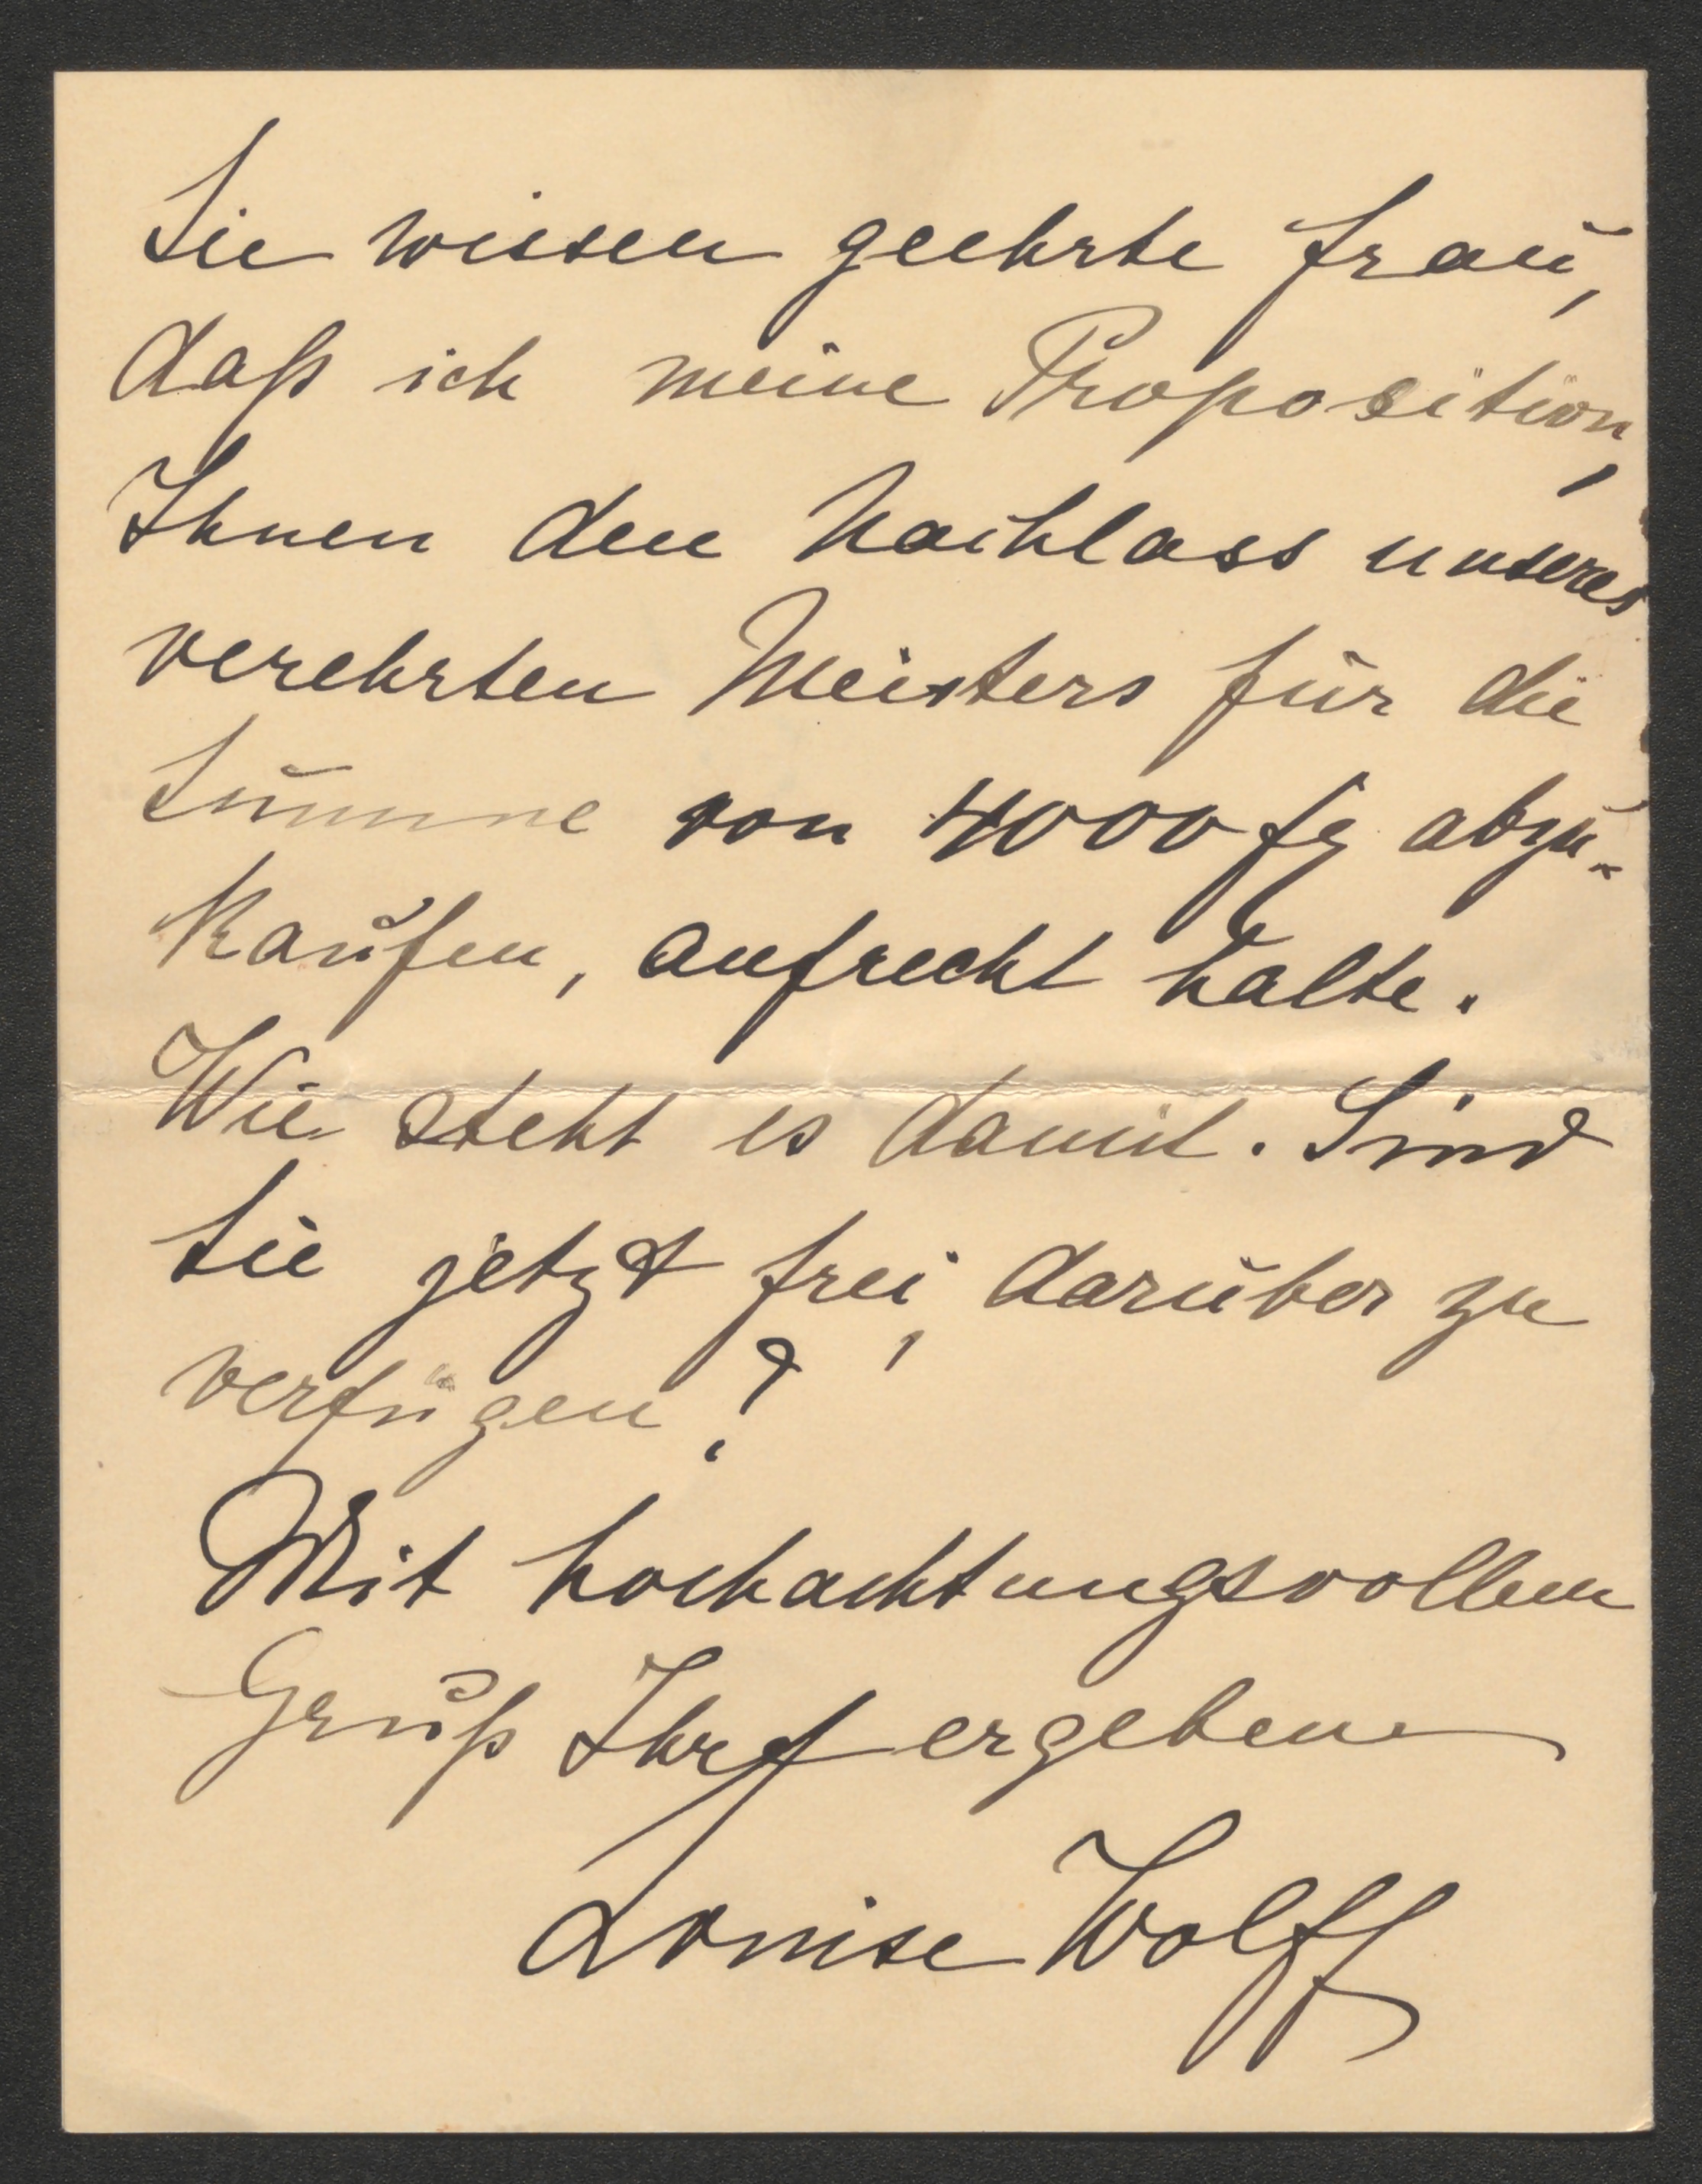 Sie wissen geehrte Frau,
daß ich meine Proposition,
Ihnen den Nachlass unseres
verehrten Meisters für die
Summe von 4000 fr abzu-
kaufen, aufrecht halte.
Wie steht es damit. Sind
Sie jetzt frei, darüber zu
verfügen?
Mit hochachtungsvollem
Gruß Ihre ergebene
Louise Wolff